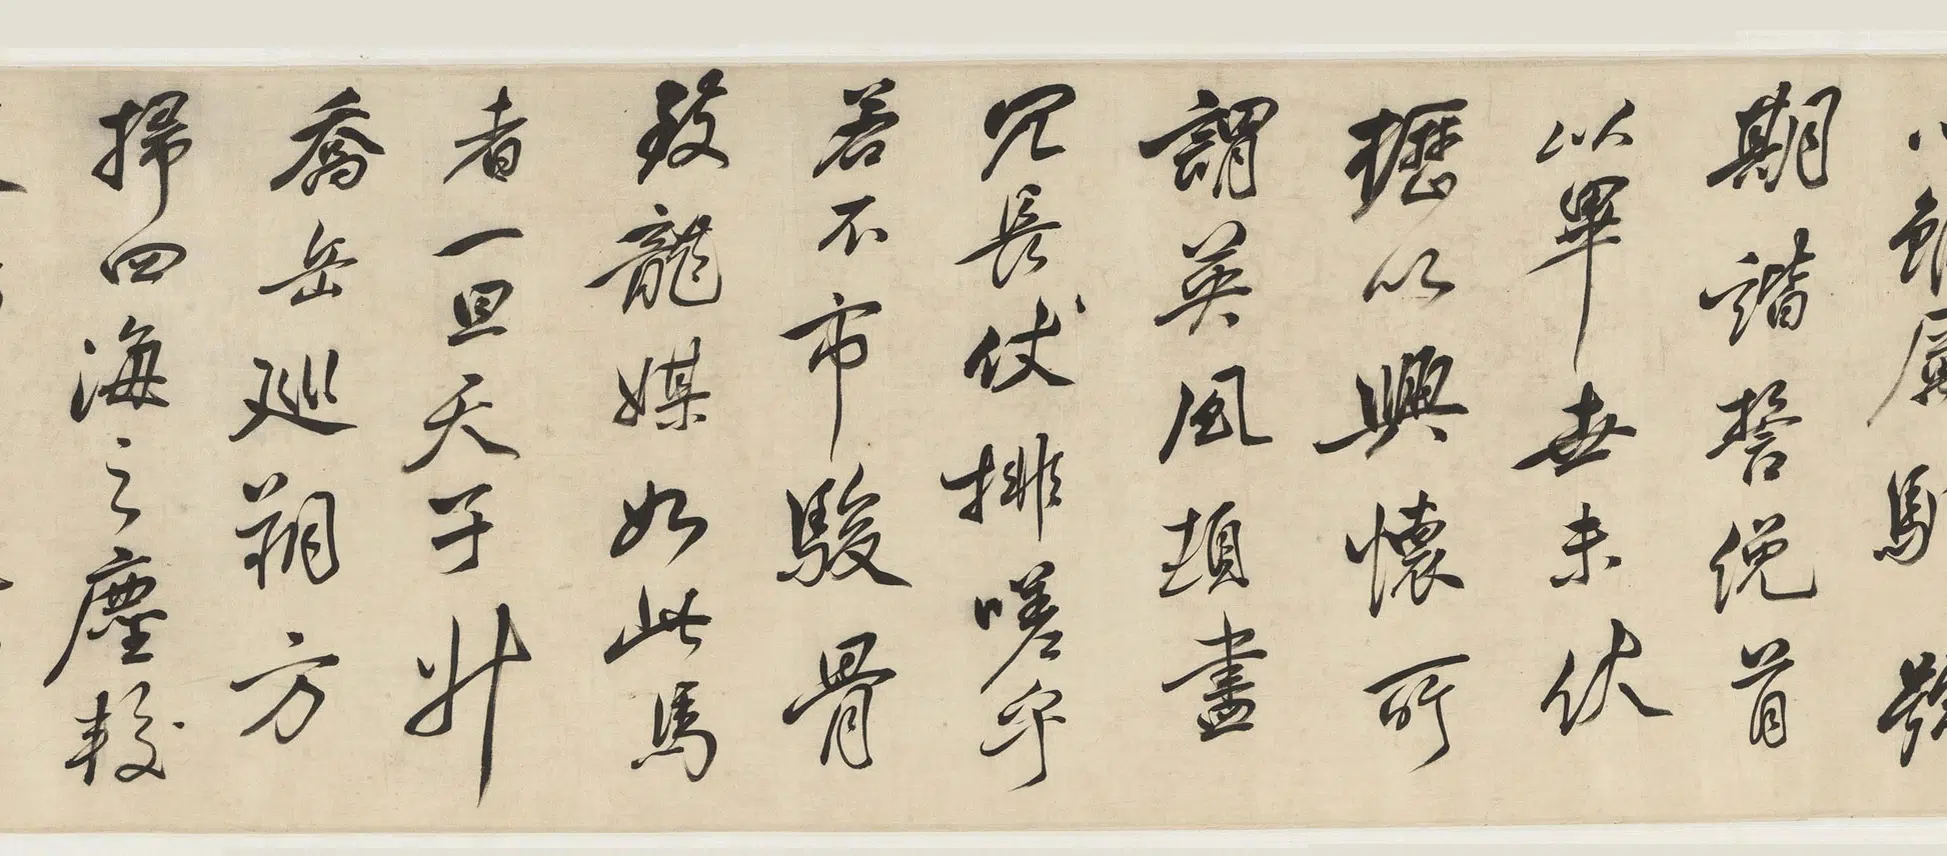 期諧誓俛首
以畢世未伏
櫪以興懷所
謂英風頓盡
冗長仗排嗟乎
若不市駿骨
致龍媒如此馬
者一旦天子升
喬岳巡朔方
掃四海之塵較